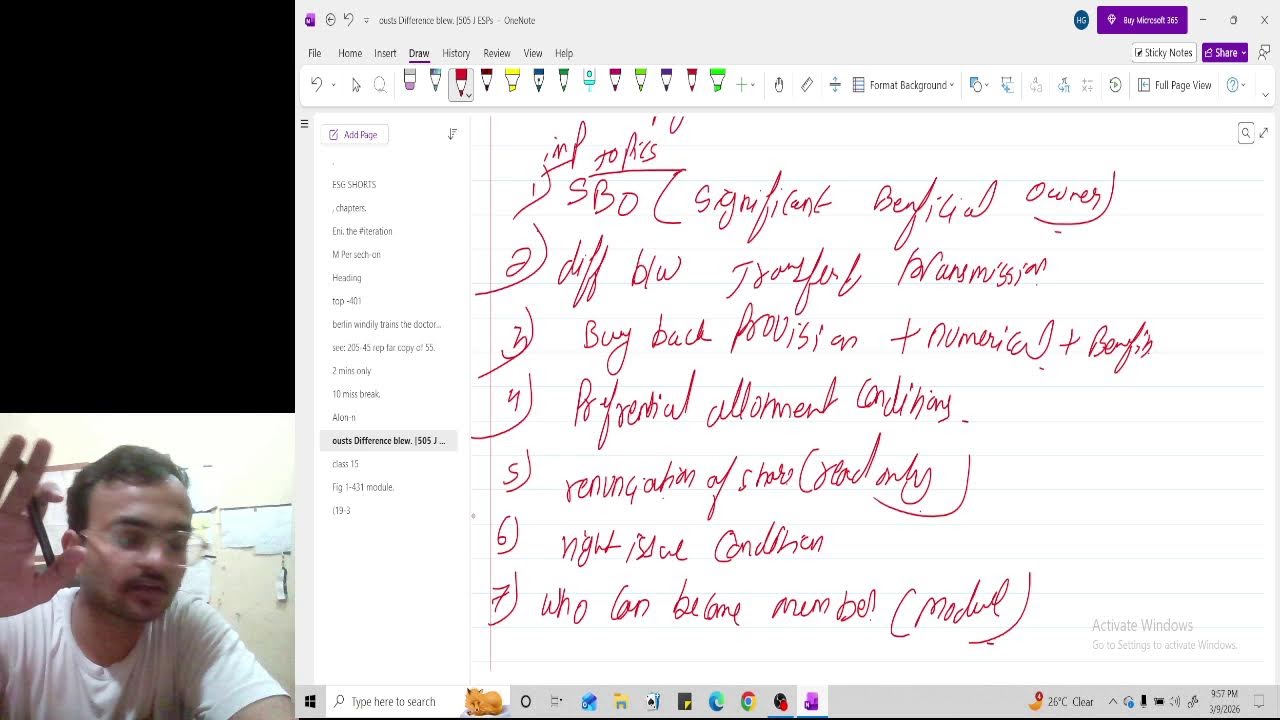 ousts Difference blew. [505 J ESPs - OneNote
HG
Buy Microsoft 365
File Home Insert Draw History Review View Help
Sticky Notes
Share
Format Background
Full Page View
Add Page
.
ESG SHORTS
, chapters.
Eni. the #iteration
M Per sech-on
Heading
top -401
berlin windily trains the doctor...
sec: 205-45 rep far copy of 55.
2 mins only
10 miss break.
Alon-n
ousts Difference blew. [505 J ...
class 15
Fig 1-431 module.
(19-3
imp topics
1) SBO (Significant Beneficial Owner)
2) diff b/w Transfer & transmission
3) Buy back Provision + numerical + Benefits
4) Prefrential allotment Conditions
5) renunciation of share (read only)
6) right issue Condition
7) who can become member (Module)
Activate Windows
Go to Settings to activate Windows.
Type here to search
4
26°C Clear
9:57 PM
3/9/2026